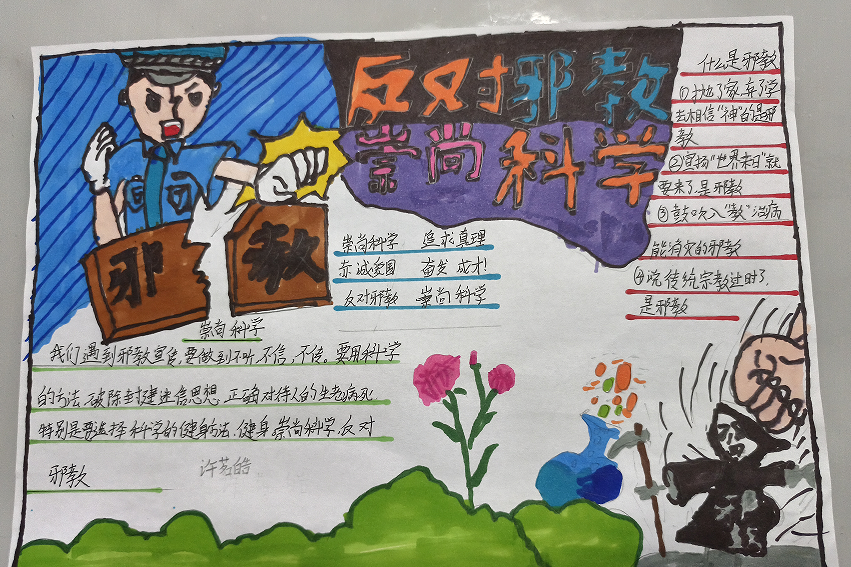 反对邪教
崇尚科学
邪教
崇尚科学 追求真理
赤诚爱国 奋发成才!
反对邪教 崇尚科学
什么是邪教
①抛了家,弃了学
去相信“神”的是邪
教
②宣扬“世界末日”就
要来了,是邪教
③鼓吹入“教”治病
能消灾的邪教
④说传统宗教过时了,
是邪教
崇尚科学
我们遇到邪教宣传,要做到不听,不信,不传。要用科学
的方法,破除封建迷信思想,正确对待人的生老病死
特别是要选择科学的健身方法,健身,崇尚科学,反对
邪教
许艺皓